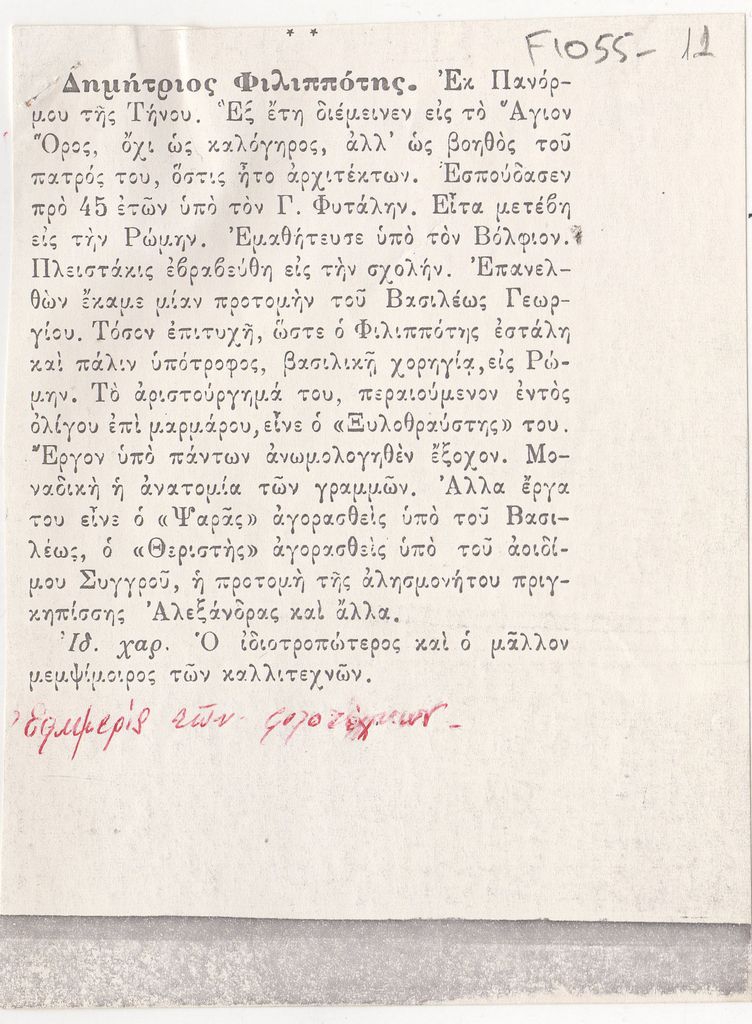 * *
F1055- 11
Δημήτριος Φιλιππότης. Ἐκ Πανόρ-
μου τῆς Τήνου. Ἓξ ἔτη διέμεινεν εἰς τὸ Ἅγιον
Ὄρος, ὄχι ὡς καλόγηρος, ἀλλ' ὡς βοηθὸς τοῦ
πατρός του, ὅστις ἦτο ἀρχιτέκτων. Ἐσπούδασεν
πρὸ 45 ἐτῶν ὑπὸ τὸν Γ. Φυτάλην. Εἶτα μετέβη
εἰς τὴν Ρώμην. Ἐμαθήτευσε ὑπὸ τὸν Βόλφιον.
Πλειστάκις ἐβραβεύθη εἰς τὴν σχολήν. Ἐπανελ-
θὼν ἔκαμε μίαν προτομὴν τοῦ Βασιλέως Γεωρ-
γίου. Τόσον ἐπιτυχῆ, ὥστε ὁ Φιλιππότης ἐστάλη
καὶ πάλιν ὑπότροφος, βασιλικῇ χορηγίᾳ, εἰς Ρώ-
μην. Τὸ ἀριστούργημά του, περαιούμενον ἐντὸς
ὀλίγου ἐπὶ μαρμάρου, εἶνε ὁ «Ξυλοθραύστης» του.
Ἔργον ὑπὸ πάντων ἀνωμολογηθὲν ἔξοχον. Μο-
ναδικὴ ἡ ἀνατομία τῶν γραμμῶν. Ἄλλα ἔργα
του εἶνε ὁ «Ψαρᾶς» ἀγορασθεὶς ὑπὸ τοῦ Βασι-
λέως, ὁ «Θεριστὴς» ἀγορασθεὶς ὑπὸ τοῦ ἀοιδί-
μου Συγγροῦ, ἡ προτομὴ τῆς ἀλησμονήτου πριγ-
κηπίσσης Ἀλεξάνδρας καὶ ἄλλα.
Ἰδ. χαρ. Ὁ ἰδιοτροπώτερος καὶ ὁ μᾶλλον
μεμψίμοιρος τῶν καλλιτεχνῶν.
Ἐφημερὶς τῶν